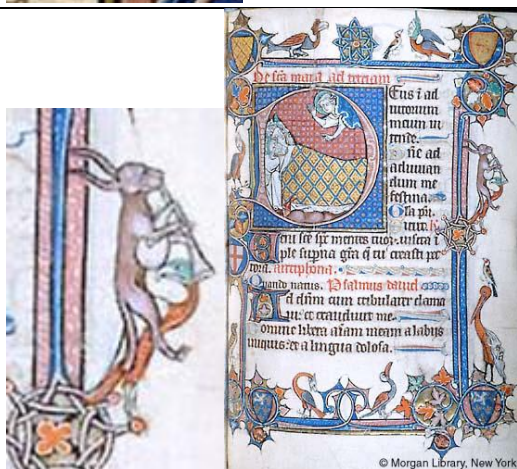 De sca maria ad terciam
Eus i ad
iutorium
meum in
tende.
ne ad
adiuuan
dum me
festina.
Ueni sce sps mentes tuor. uisita i
ple superna gra q tu creasti pec
tora. antiephona.
Quando natus. Psalmus dauid
Ad dnm cum tribularer clama
ui: et exaudiuit me.
omine libera aiam meam a labijs
iniquis: et a lingua dolosa.
© Morgan Library, New York